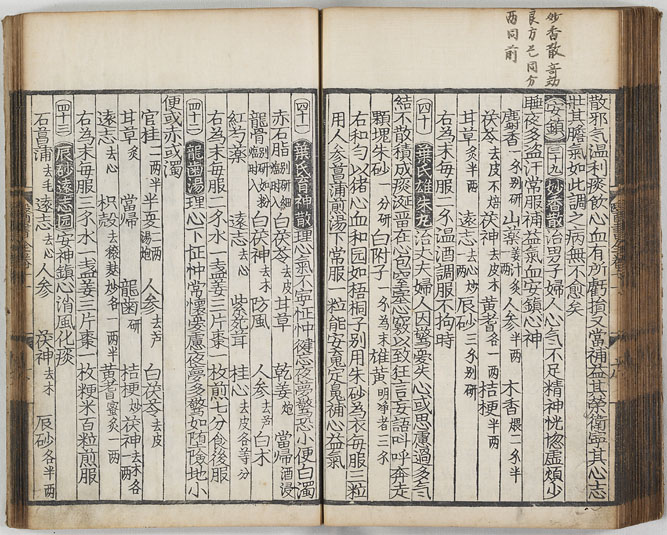 妙香散奇効
良方已同分
两同前
散邪气温利痰飮心血有所虧損又當補益其榮衛寧其心志
壯其膽氣如此調之病無不愈矣
安鎮 三十九 妙香散 治男子婦人心气不足精神恍惚虛煩少
睡夜多盜汗常服補益氣血安鎮心神
麝香一分別研 山藥 人参半两 木香煨二分半
茯苓去皮不焙 茯神去皮木 黄耆各一两 桔梗半两
甘草炙半两 遠志去心炒 辰砂三分別研
右為末每服二分温酒調服不拘時
四十 葉氏雄朱丸 治丈夫婦人因驚憂失心或思慮過多气
結不散積成痰涎畱在心胞窒塞心竅以致狂言妄語叫呼奔走
顆塊朱砂一分研 白附子一分為末 雄黄明淨者三分
右和勻以猪心血和园如梧桐子別用朱砂為衣每服三粒
用人参菖蒲煎湯下常服一粒能安魂定魄補心益氣
四十一 葉氏育神散 理心气不寧怔忡健忘夜夢驚恐小便白濁
赤石脂別研細 白茯苓去皮 甘草 乾姜炮 當歸酒浸
龍骨別研如粉 白茯神去木 防風 人参去芦 白术
紅芍藥 遠志去心 紫菀茸 桂心去皮各等分
右為末每服二分水一盞姜三片棗一枚煎七分食後服
四十二 龍齒湯 理心下怔忡常懷憂慮夜夢多驚如墮險地小
便或赤或濁
官桂二两半 半夏湯炮一两 人参去芦 白茯苓去皮
甘草炙 當帰 龍齒研 桔梗炒 茯神去木各半两
遠志去心 枳殻去穰麸炒各一两半 黄耆蜜炙一两
右為末每服三分水一盞姜三片棗一枚粳米百粒煎服
四十三 辰砂遠志园 安神鎮心消風化痰
石菖蒲去毛 遠志去心 人参 茯神去木 辰砂各半两